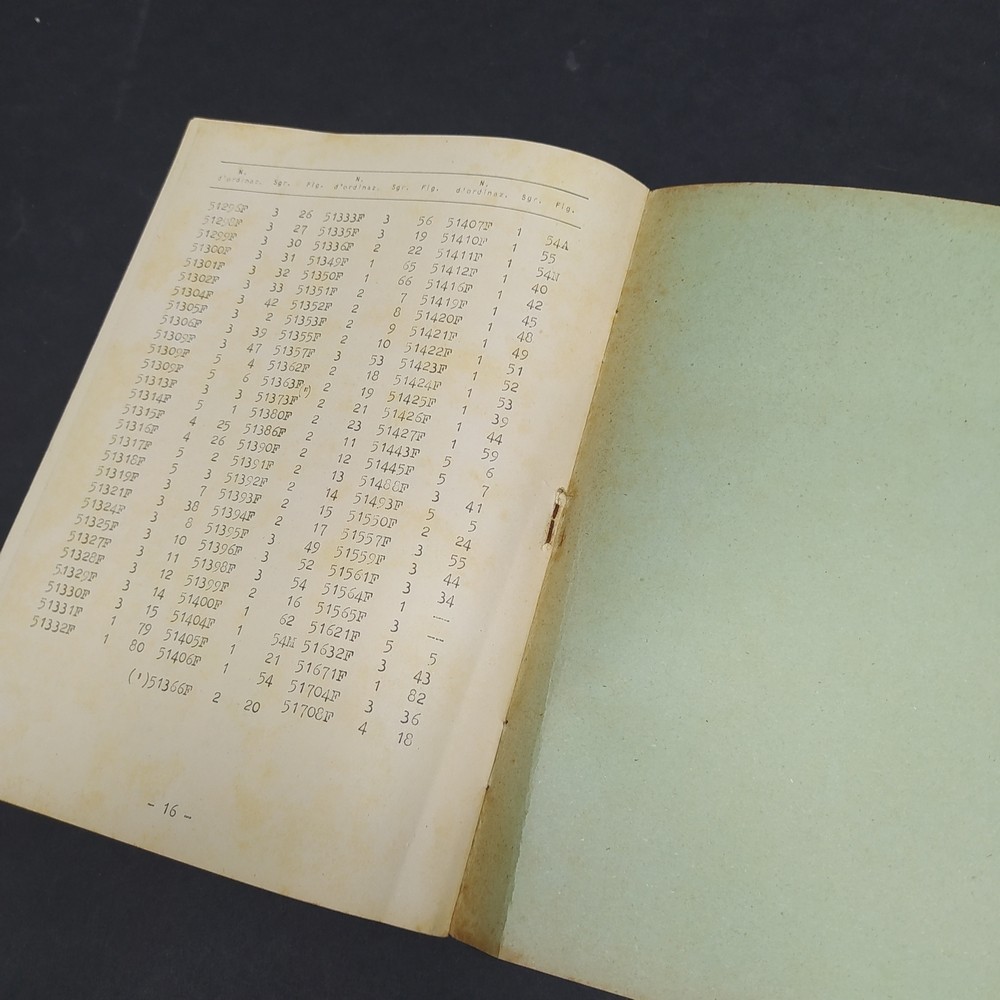 N. d'ordinaz. Sgr. Fig. N. d'ordinaz. Sgr. Fig. N. d'ordinaz. Sgr. Fig.
51296F 3 26 51333F 3 56 51407F 1 54A
51298F 3 27 51335F 3 19 51410F 1 55
51299F 3 30 51336F 2 22 51411F 1 54M
51300F 3 31 51349F 1 65 51412F 1 40
51301F 3 32 51350F 1 66 51416F 1 42
51302F 3 33 51351F 2 7 51419F 1 45
51304F 3 42 51352F 2 8 51420F 1 48
51305F 3 2 51353F 2 9 51421F 1 49
51306F 3 39 51355F 2 10 51422F 1 51
51309F 3 47 51357F 3 53 51423F 1 52
51309F 5 4 51362F 2 18 51424F 1 53
51309F 5 6 51363F 2 19 51425F 1 39
51313F 3 3 51373F(") 2 21 51426F 1 44
51314F 5 1 51380F 2 23 51427F 1 59
51315F 4 25 51386F 2 11 51443F 5 6
51316F 4 26 51390F 2 12 51445F 5 7
51317F 5 2 51391F 2 13 51488F 3 41
51318F 5 3 51392F 2 14 51493F 5 5
51319F 3 7 51393F 2 15 51550F 2 24
51321F 3 38 51394F 2 17 51557F 3 55
51324F 3 8 51395F 3 49 51559F 3 44
51325F 3 10 51396F 3 52 51561F 3 34
51327F 3 11 51398F 3 54 51564F 1 ——
51328F 3 12 51399F 2 16 51565F 3 ——
51329F 3 14 51400F 1 62 51621F 5 5
51330F 3 15 51404F 1 54M 51632F 3 43
51331F 1 79 51405F 1 21 51671F 1 82
51332F 1 80 51406F 1 54 51704F 3 36
(')51366F 2 20 51708F 4 18
- 16 -